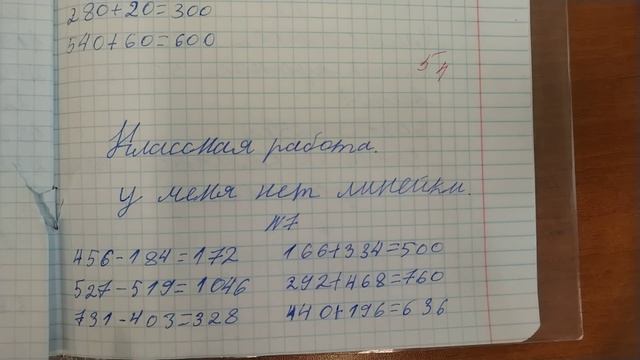 280+20=300
540+60=600
54
Классная работа.
У меня нет линейки.
№7
456-184=172 166+334=500
527-519=1046 292+468=760
731-403=328 440+196=636